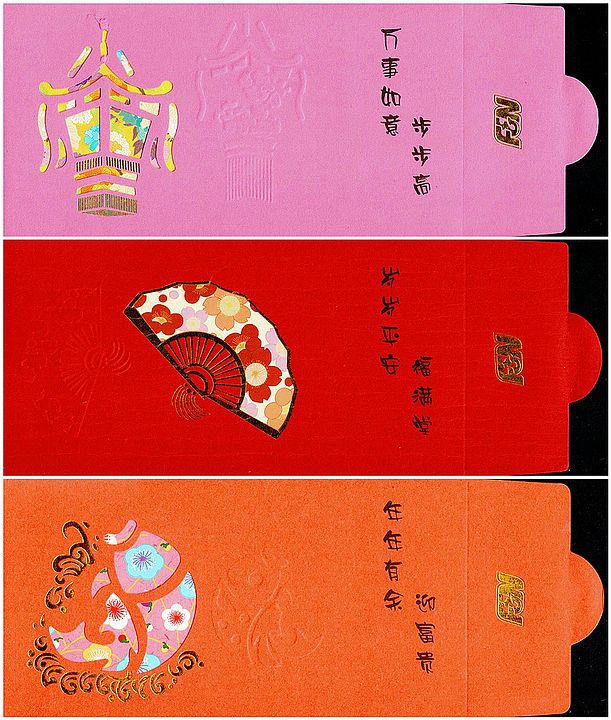 万事如意
步步高
F&N
岁岁平安
福满堂
F&N
年年有余
迎富贵
F&N